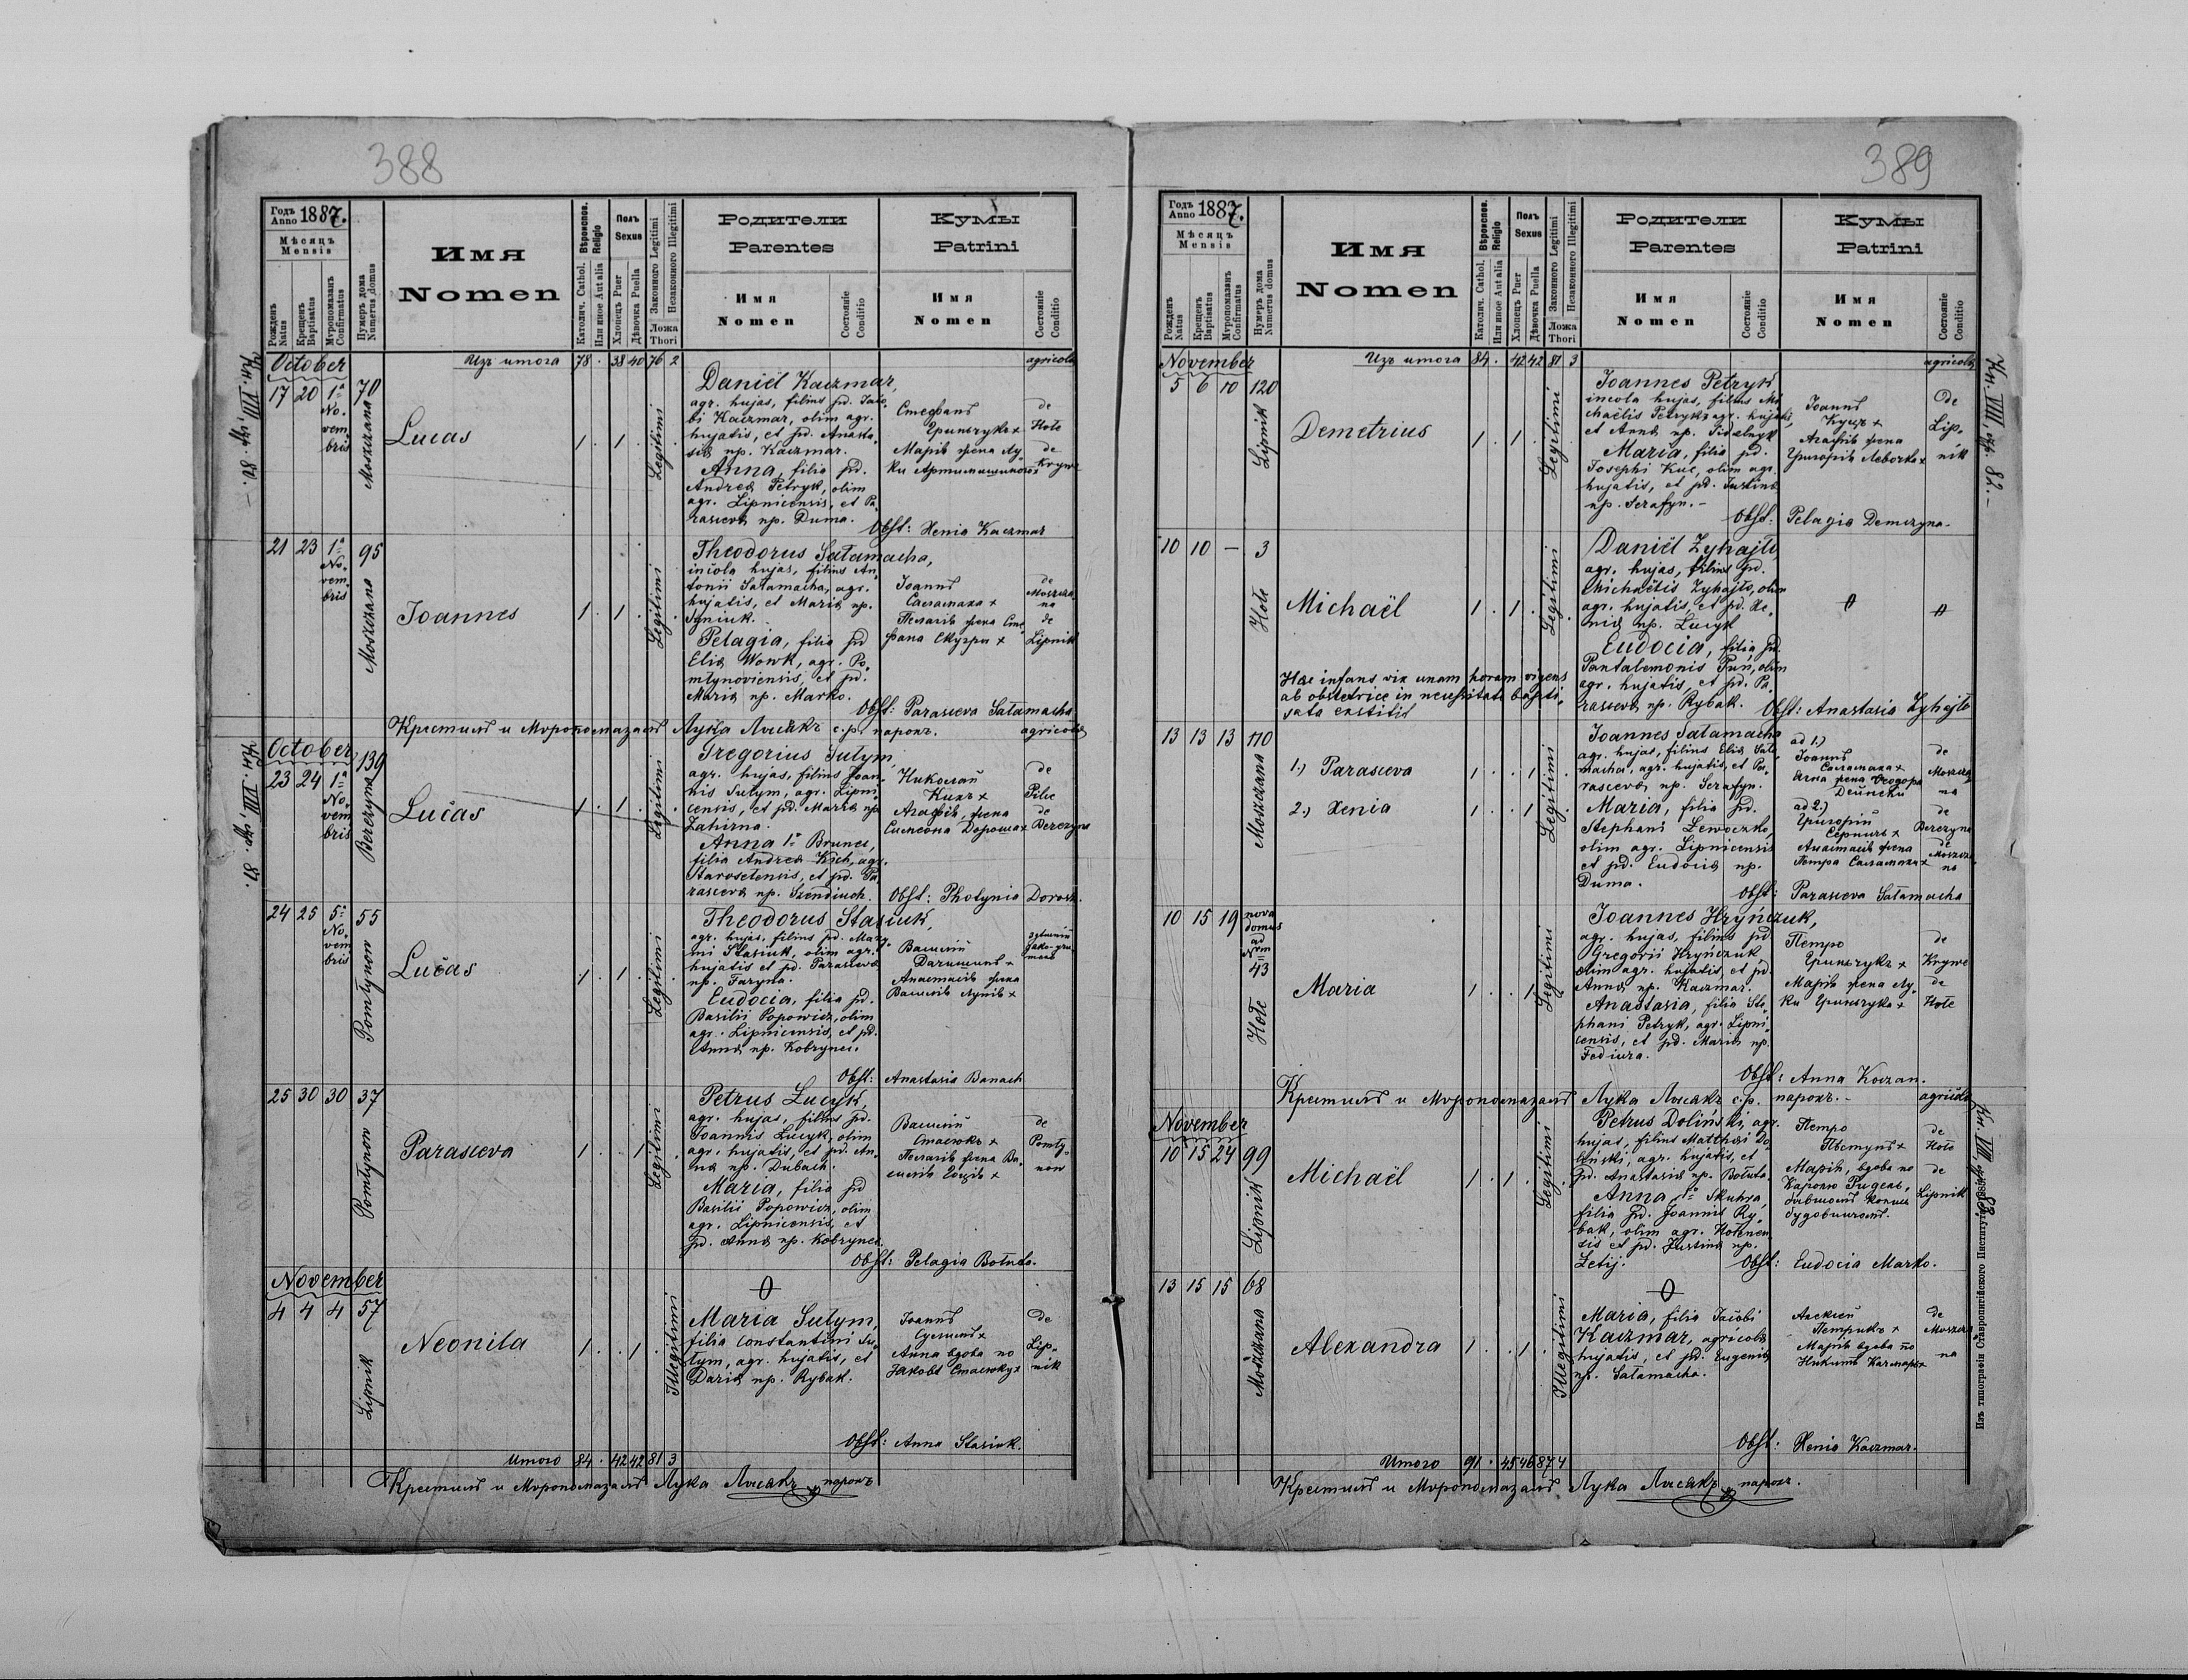 388
Годъ Anno 1887.
Мѣсяцъ
Mensis
Рожденъ Natus
Крещенъ Baptisatus
Мѵропомазанъ Confirmatus
Нумеръ дома Numerus domus
Имя
Nomen
Вѣроисповѣд. Religio
Католич. Cathol.
Или иное Aut alia
Полъ
Sexus
Хлопецъ Puer
Дѣвочка Puella
Законного Legitimi
Незаконного Illegitimi
Ложа
Thori
Родители
Parentes
Имя
Nomen
Состояніе Conditio
Кумы
Patrini
Имя
Nomen
Состояніе Conditio
Кн. VIII, стр. 80.-
October
Изъ итога 78 . 38 40 76 2
agricola
17 20 1a
No-
vem
bris
70
Moszczana
Lucas
1 . 1 .
Legitimi
Daniël Kaczmar,
agr. hujas, filius pd. Jaco-
bi Kaczmar, olim agr.
hujatis, et pd. Anasta-
siae np. Kaczmar.
Anna, filia pd.
Andreae Petryk, olim
agr. Lipnicensis, et Pa-
rascevae np. Duma.
Стефанъ
Гриньчукъ +
Марія жена Лу-
ки
de
Hole
de
Krywe
Obst: Xenia Kaczmar
21 23 1a
No-
vem-
bris
95
Moszczana
Joannes
1 . 1 .
Legitimi
Theodorus Sałamacha,
incola hujas, filius An-
tonii Sałamacha, agr.
hujatis, et Mariae np.
Pelagia, filia pd
Eliae Wowk, agr. Po-
młynoviensis, et pd.
Mariae np. Marko.
Іоаннъ
Саламаха +
Пелагія жена Сте-
фана Скугры +
de
Moszcza-
na
de
Lipnik
Obst: Parasceva Sałamacha
Крестилъ и Мѵропомазалъ Лука Лисакъ с.р. парохъ.
agricola
Кн. VIII, стр. 81.
October
23 24 1a
No-
vem
bris
139
Berezyna
Lucas
1 . 1 .
Legitimi
Gregorius Sutym,
agr. hujas, filius Joan-
nis Sutym, agr. Lipni-
censis, et pd. Mariae np
Zahirna.
Anna 1o Brunec,
filia Andreae Kich, agr.
Staroselensis, et pd. Pa-
rascevae np. Szendiuch.
Николай
Кихъ +
Агафія, жена
Симеона Дороша +
de
de
Berezyna
Obst: Photynia Dorosz.
24 25 5a
No-
vem
bris
55
Pomłynow
Lucas
1 . 1 .
Legitimi
Theodorus Stasiuk,
agr. hujas, filius pd. Maxy-
mi Stasiuk, olim agr.
hujatis et pd. Parascevae
np. Faryna.
Eudocia, filia pd.
Basilii Popowicz, olim
agr. Lipnicensis, et pd.
Annae np. Kobrynec.
Василій
Анастасія жена
Obst: Anastasia Banach
25 30 30 37
Pomłynow
Parasceva
1 . . 1
Legitimi
Petrus Łucyk,
agr. hujas, filius pd.
Joannis Łucyk, olim
agr. hujatis, et pd. An-
nae np. Dubach.
Maria, filia pd
Basilii Popowicz, olim
agr. Lipnicensis, et
pd. Annae np. Kobrynec.
Василій
Стасюкъ +
Пелагія жена Ва-
силія
de
Pomły-
now
Obst: Pelagia Botuda.
November
4 4 4 57
Lipnik
Neonila
1 . . 1 .
Illegitimi
0
Maria Sutym,
filia Constantini Su-
tym, agr. hujatis, et
Dariae np. Rybak.
Іоаннъ
Анна вдова по
Яковѣ Стасюку +
de
Lip-
nik
Obst: Anna Stasiuk.
Итого 84 . 42 42 81 3
Крестилъ и Мѵропомазалъ Лука Лисакъ парохъ
389
Годъ Anno 1887.
Мѣсяцъ
Mensis
Рожденъ Natus
Крещенъ Baptisatus
Мѵропомазанъ Confirmatus
Нумеръ дома Numerus domus
Имя
Nomen
Вѣроисповѣд. Religio
Католич. Cathol.
Или иное Aut alia
Полъ
Sexus
Хлопецъ Puer
Дѣвочка Puella
Законного Legitimi
Незаконного Illegitimi
Ложа
Thori
Родители
Parentes
Имя
Nomen
Состояніе Conditio
Кумы
Patrini
Имя
Nomen
Состояніе Conditio
Кн. VIII, стр. 82.-
November
Изъ итога 84 . 42 42 81 3
agricola
5 6 10 120
Lipnik
Demetrius
1 . 1 .
Legitimi
Joannes Petryk
incola hujas, filius Mi-
chaëlis Petryk agr. hujatis,
et Annae np.
Maria, filia pd.
Josephi Kuc, olim agr.
hujatis, et pd. Justinae
np. Serafyn.-
Іоаннъ
Куцъ +
Агафія жена
Григорія Левочка +
De
Lip-
nik
Obst: Pelagia Demczyna-
10 10 - 3
Hołe
Michaël
1 . 1 .
Legitimi
Daniël Zyhajło
agr. hujas, filius pd.
Michaëlis Zyhajło, olim
agr. hujatis, et pd. Xe-
niae np. Łucyk
Eudocia, filia pd.
Pantalemonis Puń, olim
agr. hujatis, et pd. Pa-
rascevae np. Rybak.
0
0
Hae infans vix unam horam vigens
ab obstetrice in necessitate bapti-
sata extitit
Obst: Anastasia Zyhajło
13 13 13 110
Moszczana
1.) Parasceva
1 . . 1
2.) Xenia
1 . . 1
Legitimi
Joannes Sałamacha
agr. hujas, filius Eliae Sała-
macha, agr. hujatis, et Pa-
rascevae np. Serafyn.
Maria, filia pd.
Stephani Lewoczko,
olim agr. Lipnicensis
et pd. Eudociae np.
Duma.
ad 1.)
Іоаннъ
Саламаха +
Анна жена Ѳеодора
ad 2.)
Григорій
Анастасія жена
Петра Саламахи +
de
Moszcza-
na
de
Berezyna
de
Moszcza-
na
Obst: Parasceva Sałamacha
10 15 19 nova
domus
ad
Nrm
43
Hołe
Maria
1 . . 1
Legitimi
Joannes Hryńczuk,
agr. hujas, filius pd
Gregorii Hryńczuk
olim agr. hujatis, et pd.
Annae np. Kaczmar.
Anastasia, filia Ste-
phani Petryk, agr. Lipni-
censis, et pd. Mariae np.
Fediura.
Петро
Гриньчукъ +
Марія жена Лу-
ки Гриньчука +
de
Krywe
de
Hołe
Obst: Anna Koczan.
Крестилъ и Мѵропомазалъ Лука Лисакъ с.р. парохъ.-
agricola
Кн. VIII, стр. 83
November
10 15 24 99
Lipnik
Michaël
1 . 1 .
Legitimi
Petrus Doliński, agr.
hujas, filius Matthaei Do-
liński, agr. hujatis, et
pd. Anastasiae np. Botuda.
Anna 1o Skuhra,
filia pd. Joannis Ry-
bak, olim agr. Hołenen-
sis et pd. Justinae np.
Letij.
Петро
Марія, вдова по
Каролю
de
Hołe
de
Lipnik
Obst: Eudocia Marko.
13 15 15 68
Moszczana
Alexandra
1 . . 1 .
Illegitimi
0
Maria, filia Jacobi
Kaczmar, agricolae
hujatis, et pd. Eugeniae
np. Sałamacha.
Алексій
Петрикъ +
Марія вдова по
Никитѣ Качмаръ +
de
Moszcza-
na
Obst: Xenia Kaczmar.
Итого 91 . 45 46 87 4
Крестилъ и Мѵропомазалъ Лука Лисакъ парохъ.
Изъ типографіи Ставропигійского Института